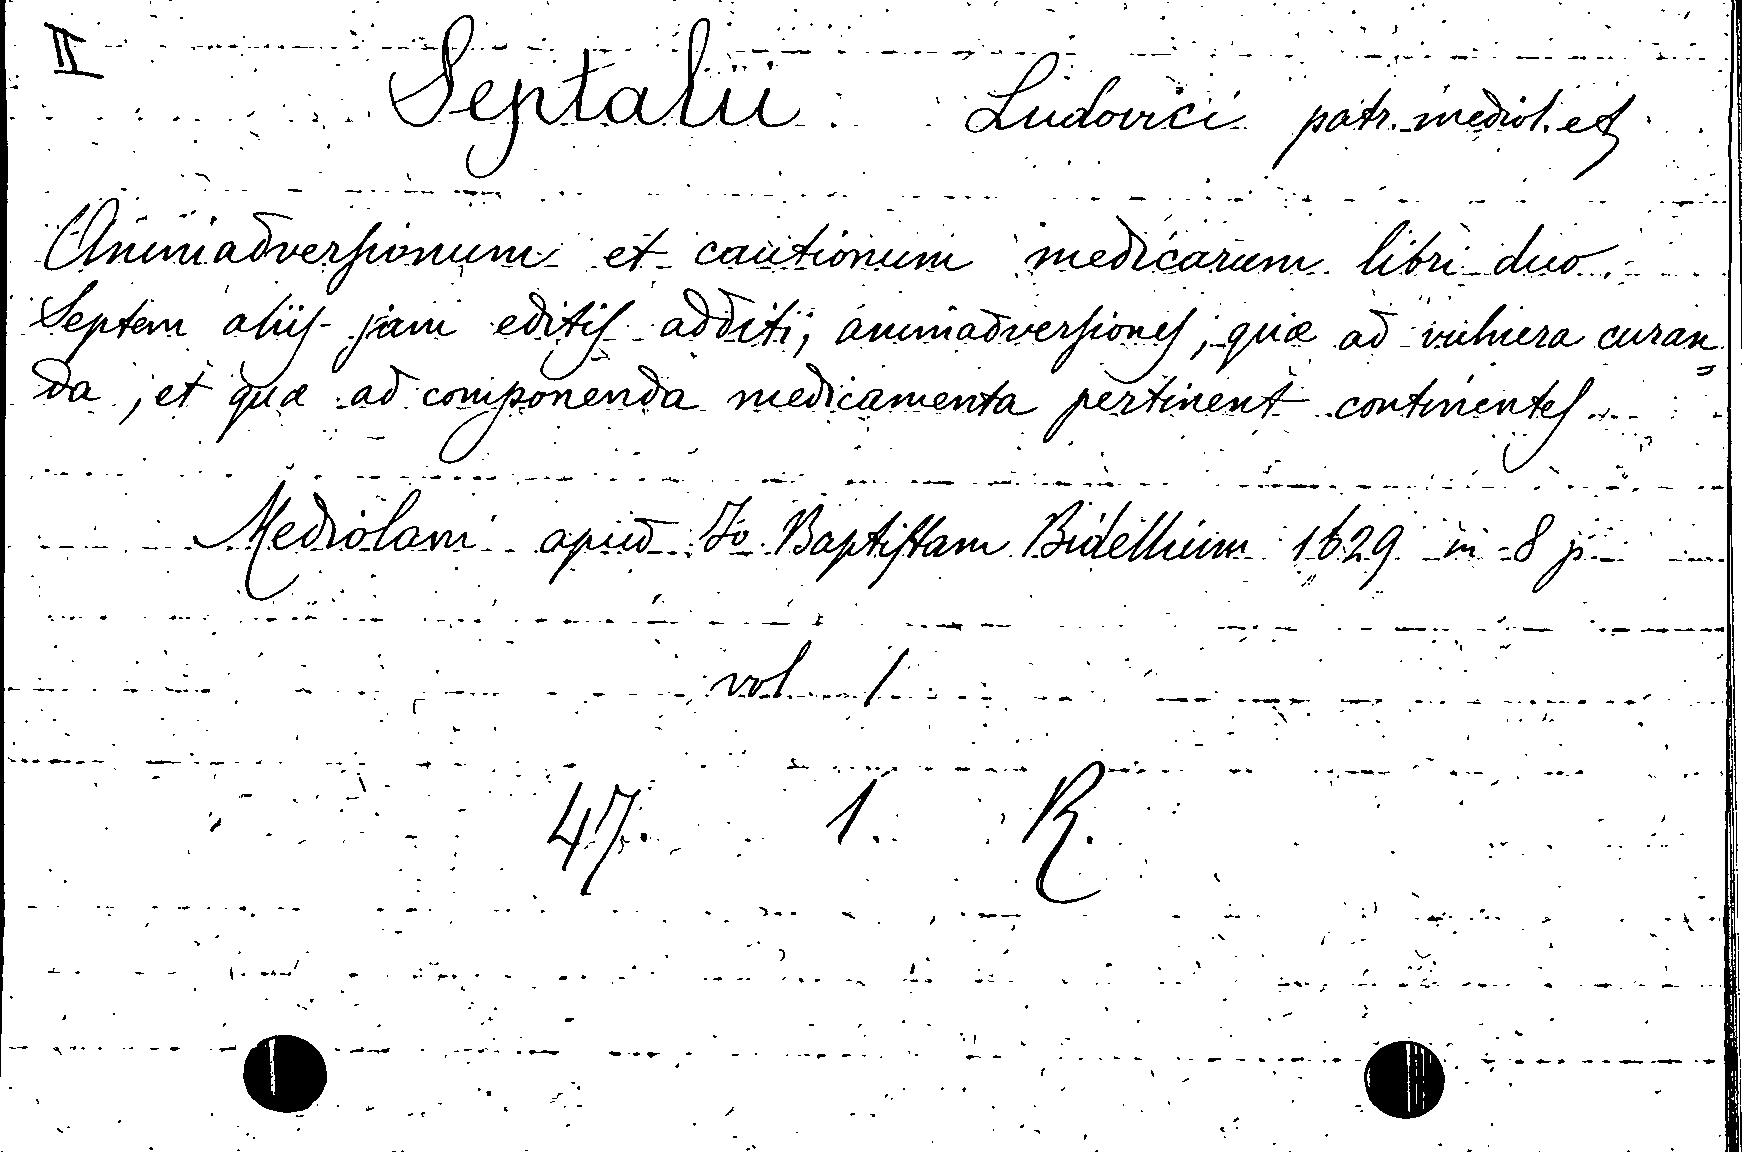 II
Septalii Ludovici patr. mediol. et
Animadversionum et cautionum medicarum libri duo.
Septem aliis jam editis additi, animadversiones, quæ ad vulnera curan=
da, et quæ ad componenda medicamenta pertinent continentes
Mediolani apud Jo. Baptistam Bidellium 1629 in 8 p
vol 1
47. 1. R.